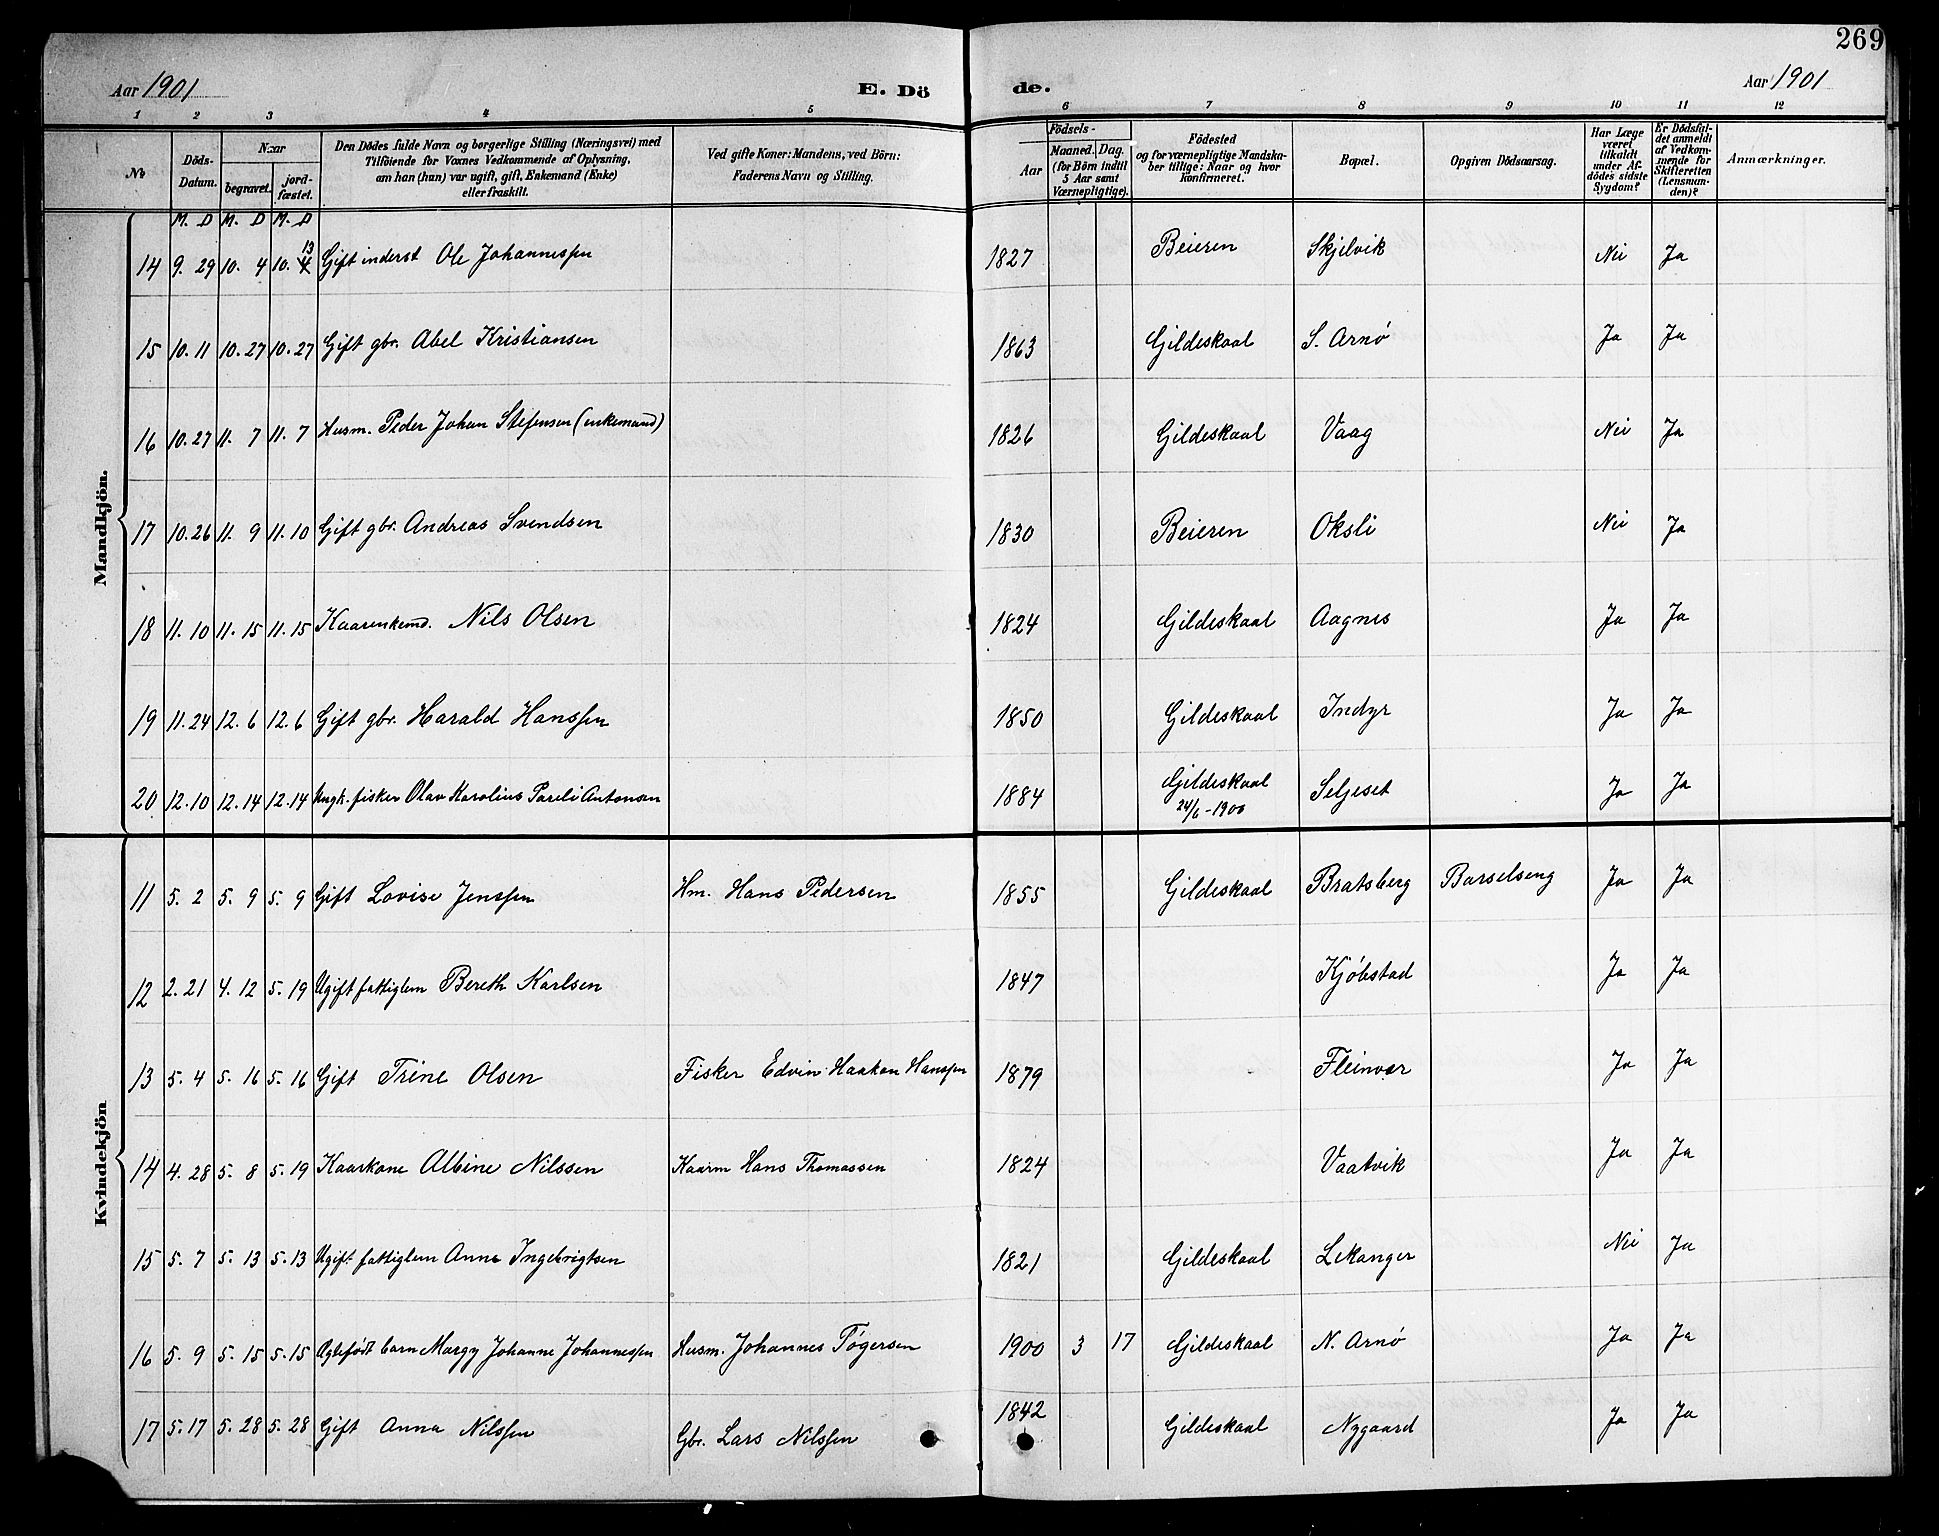 269
Aar 1901 E. Dö de. Aar 1901
1 2 3 4 5 6 7 8 9 10 11 12
No Döds-Datum. Naar begravet. jordfæstet. Den Dödes fulde Navn og borgerlige Stilling (Næringsvei) med Tilföiende for Voxnes Vedkommende af Oplysning, om han (hun) var ugift, gift, Enkemand (Enke) eller fraskilt. Ved gifte Koner: Mandens, ved Börn: Faderens Navn og Stilling. Födsels- Aar Maaned. Dag. (for Börn indtil 5 Aar samt Værnepligtige). Födested og for værnepligtige Mandskaber tillige: Naar og hvor konfirmeret. Bopæl. Opgiven Dödsaarsag. Har Læge været tilkaldt under Afdödes sidste Sygdom? Er Dödsfaldet anmeldt af Vedkommende for Skifteretten (Lensmanden)? Anmærkninger.
M. D M. D M. D
Mandkjön.
14 9. 29 10. 4 10. 13 4 Gift inderst Ole Johannessen 1827 Beieren Skjelvik Nei Ja
15 10. 11 10. 27 10. 27 Gift gbr. Abel Kristiansen 1863 Gildeskaal S. Arnø Ja Ja
16 10. 27 11. 7 11. 7 Husm. Peder Johan Stefensen (enkemand) 1826 Gildeskaal Vaag Nei Ja
17 10. 26 11. 9 11. 10 Gift gbr. Andreas Svendsen 1830 Beieren Oksli Nei Ja
18 11. 10 11. 15 11. 15 Kaarenkemd. Nils Olsen 1824 Gildeskaal Aagnes Ja Ja
19 11. 24 12. 6 12. 6 Gift gbr. Harald Hanssen 1850 Gildeskaal Indyr Ja Ja
20 12. 10 12. 14 12. 14 Ungk. fisker Olav Karolius Pareli Antonsen 1884 Gildeskaal 24/6 - 1900 Seljeset Ja Ja
Kvindekjön
11 5. 2 5. 9 5. 9 Gift Lovise Jenssen Hm. Hans Pedersen 1855 Gildeskaal Bratsberg Barselseng Ja Ja
12 2. 21 4. 12 5. 19 Ugift fattiglem Bereth Karlsen 1847 Kjøbstad Ja Ja
13 5. 4 5. 16 5. 16 Gift Trine Olsen Fisker Edvin Haakon Hanssen 1879 Fleinvær Ja Ja
14 4. 28 5. 8 5. 19 Kaarkone Albine Nilssen Kaarm Hans Thomassen 1824 Vaatvik Ja Ja
15 5. 7 5. 13 5. 13 Ugift fattiglem Anne Ingebrigtsen 1821 Gildeskaal Lekanger Nei Ja
16 5. 9 5. 15 5. 15 Ugtefødt barn Margy Johanne Johannessen Husm. Johannes Tøgersen 1900 3 17 Gildeskaal N. Arnø Ja Ja
17 5. 17 5. 28 5. 28 Gift Anna Nilssen Gbr. Lars Nilssen 1842 Gildeskaal Nygaard Ja Ja